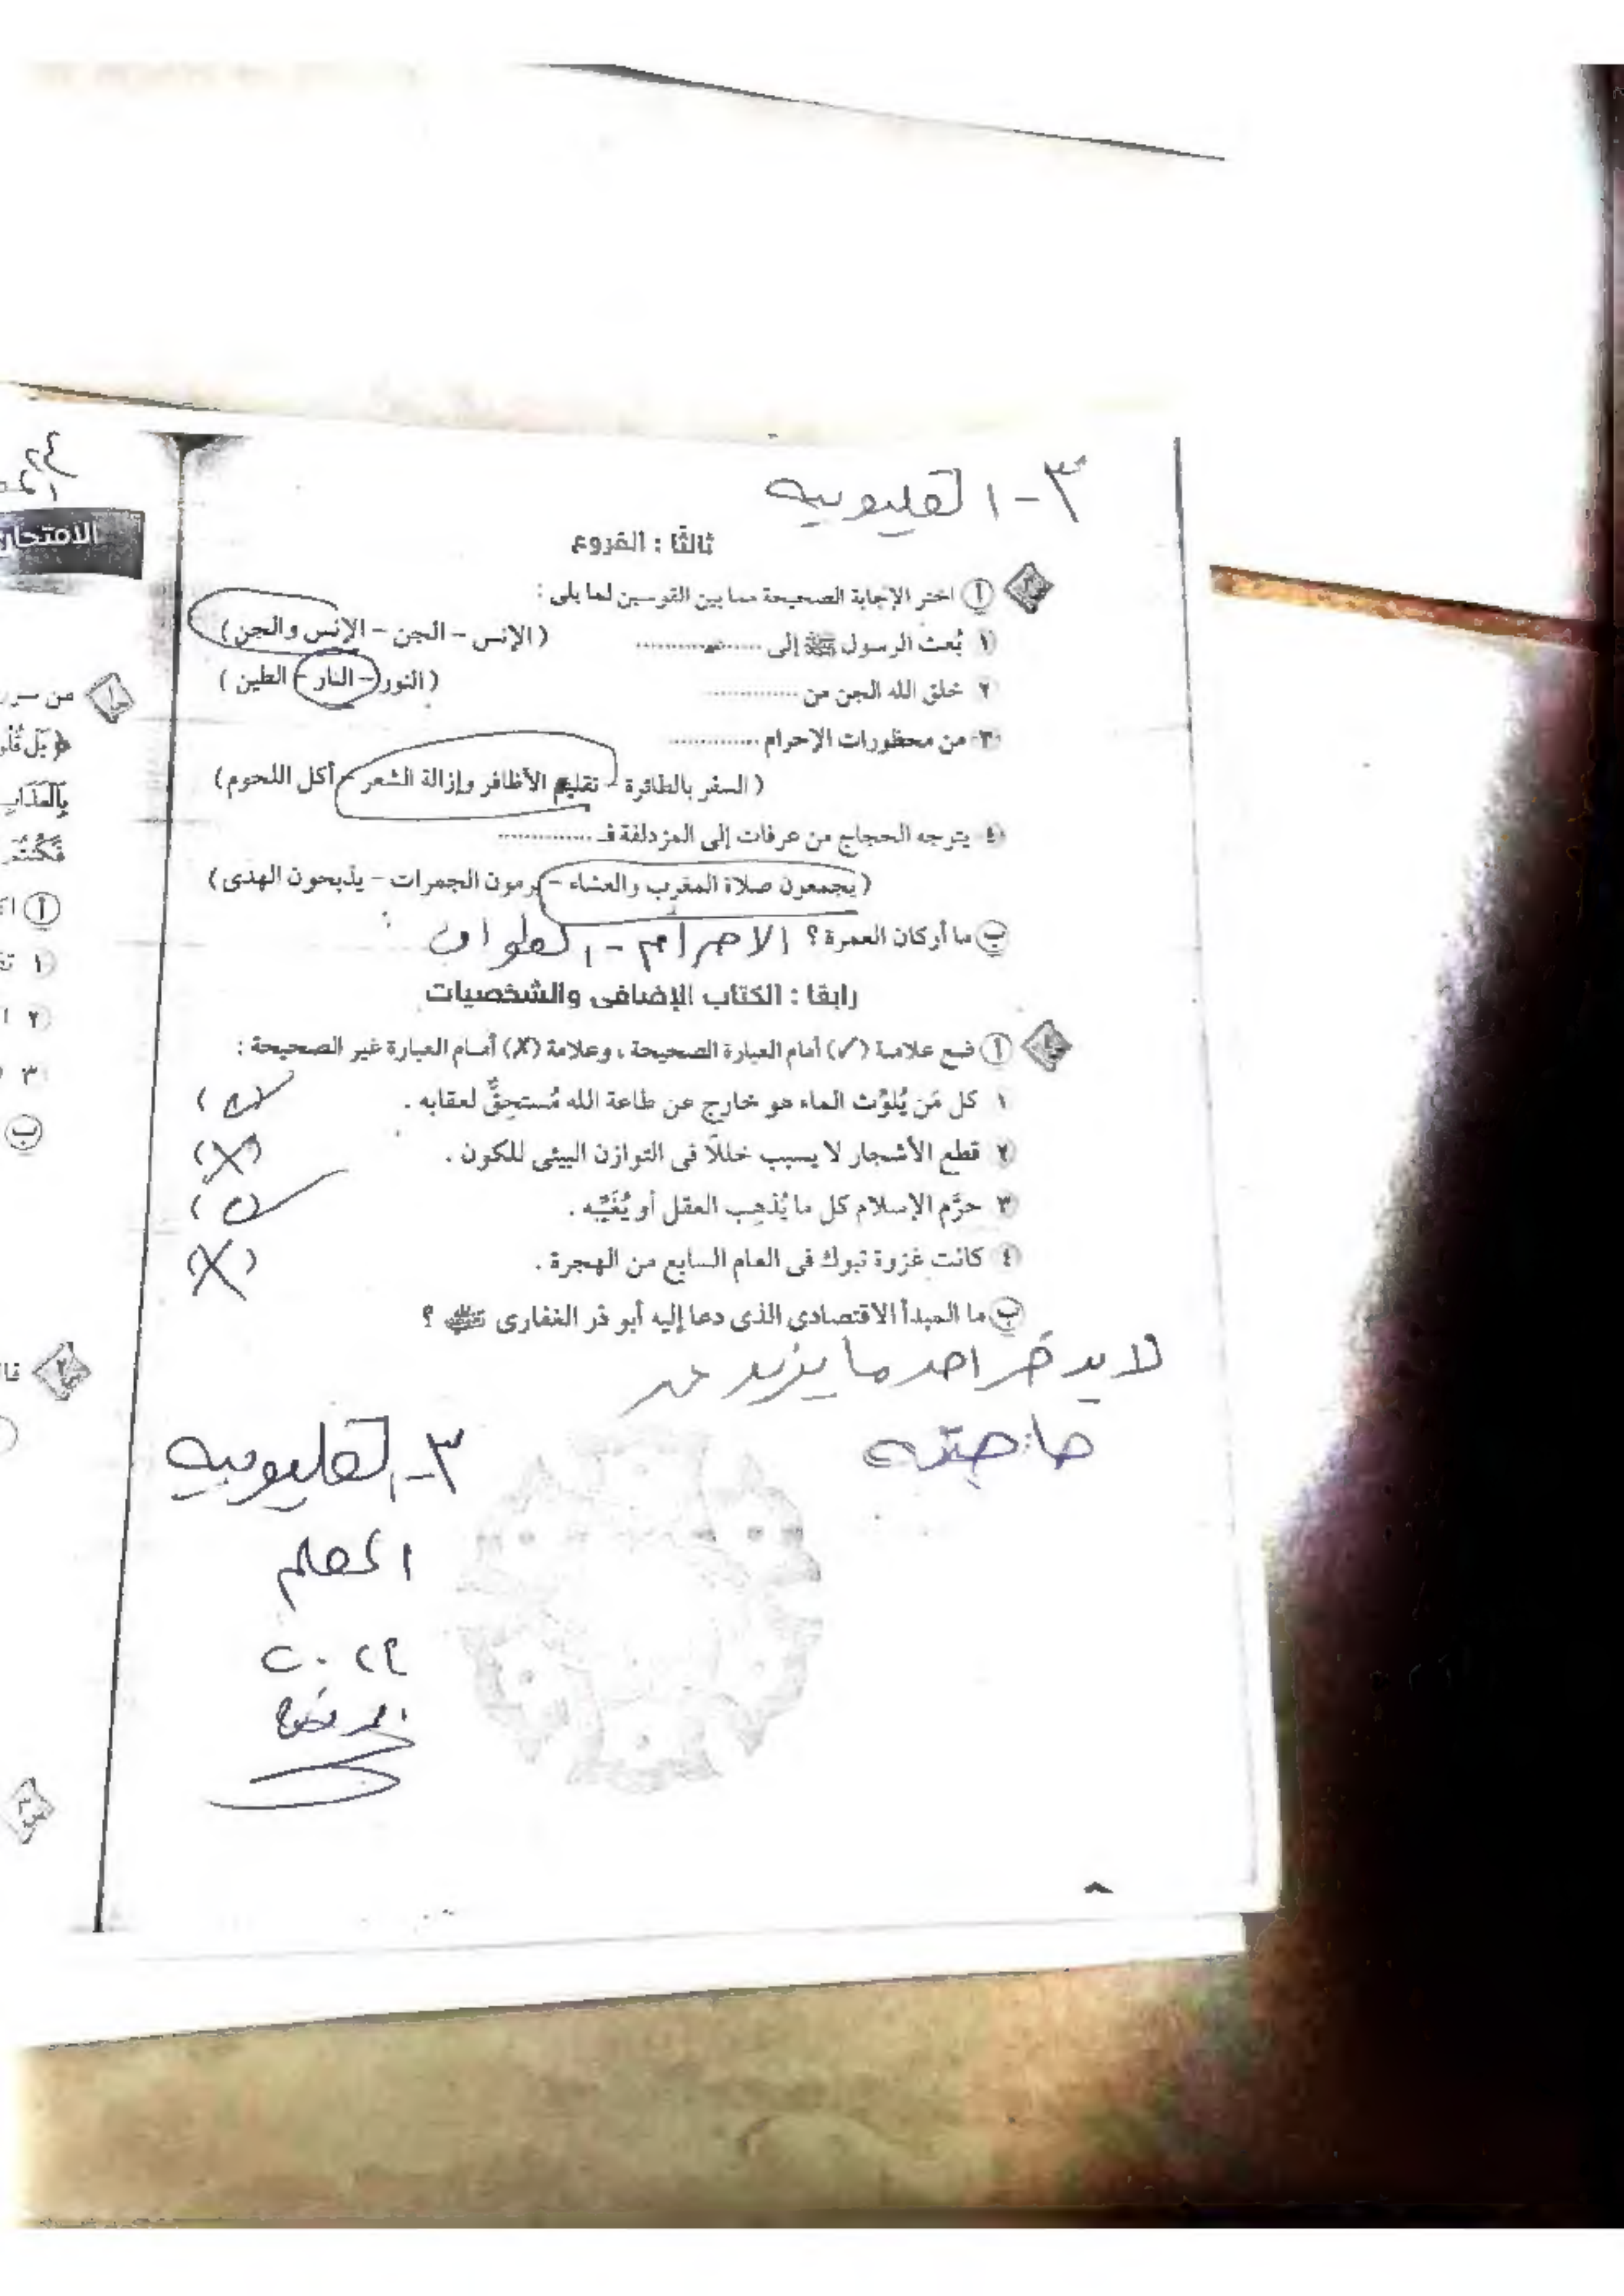 ٣- القليوبيه
ثالثًا : الفروع
أ اختر الإجابة الصحيحة مما بين القوسين لما يلى :
١ بُعث الرسول ﷺ إلى ............ (الإنس - الجن - الإنس والجن)
٢ خلق الله الجن من ............ (النور - النار - الطين)
٣ من محظورات الإحرام ............
(السفر بالطائرة - تقليم الأظافر وإزالة الشعر - أكل اللحوم)
٤ يتوجه الحجاج من عرفات إلى المزدلفة فـ ............
(يجمعون صلاة المغرب والعشاء - يرمون الجمرات - يذبحون الهدى)
ب ما أركان العمرة ؟ الاحرام - الطواف
رابعًا : الكتاب الإضافى والشخصيات
أ ضع علامة (✓) أمام العبارة الصحيحة ، وعلامة (✗) أمام العبارة غير الصحيحة :
١ كل مَن يُلوِّث الماء هو خارج عن طاعة الله مُستحِقٌّ لعقابه . (✓)
٢ قطع الأشجار لا يسبب خللًا فى التوازن البيئى للكون . (✗)
٣ حرَّم الإسلام كل ما يُذهِب العقل أو يُغَيِّبه . (✓)
٤ كانت غزوة تبوك فى العام السابع من الهجرة . (✗)
ب ما المبدأ الاقتصادى الذى دعا إليه أبو ذر الغفارى ؟
لا يدخر احد ما يزيد عن
حاجته
٣- القليوبيه
المعلم
٨
الامتحان
من سور
بِالْعَذَابِ
ب